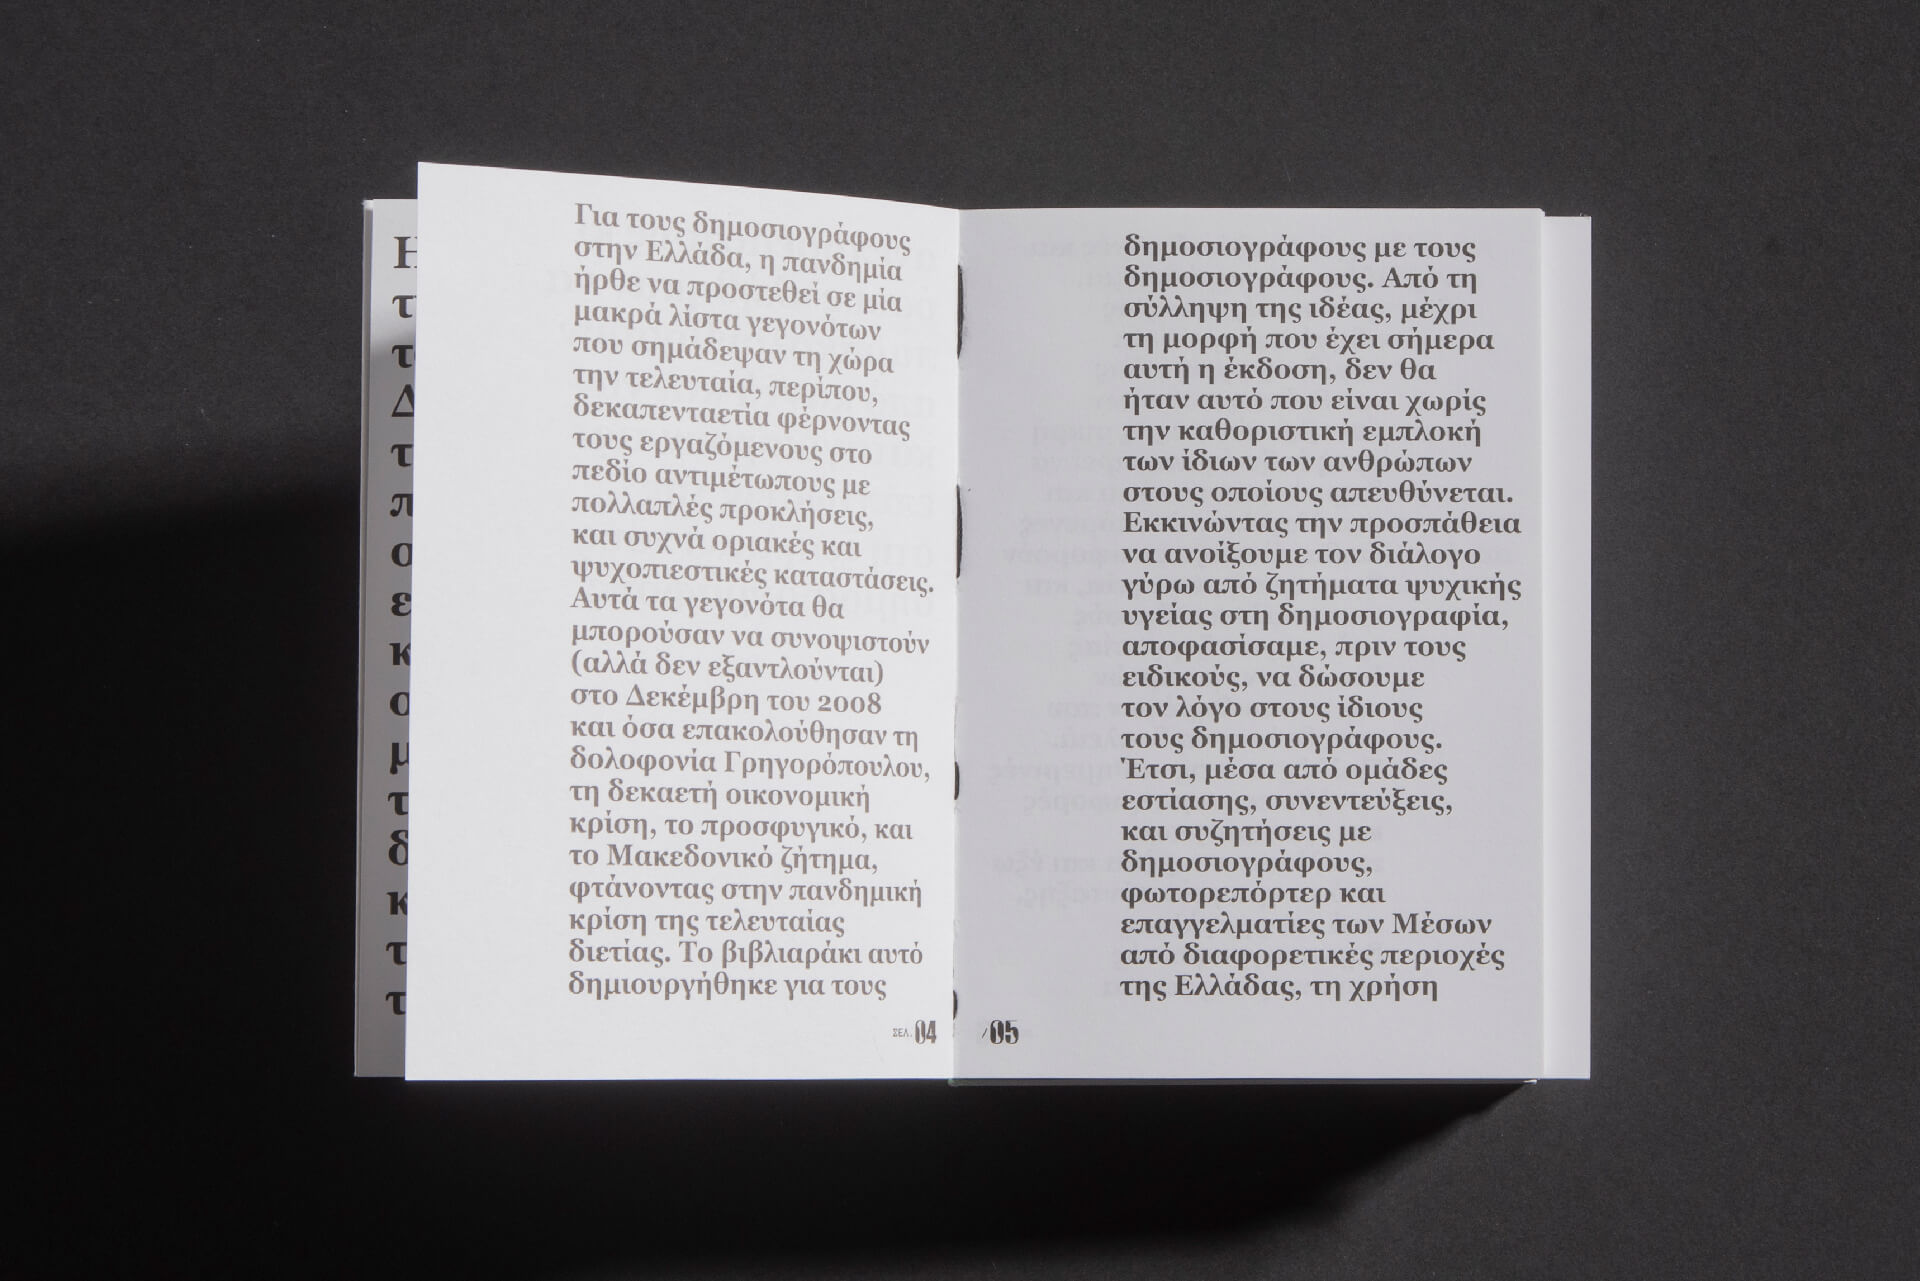 Για τους δημοσιογράφους
στην Ελλάδα, η πανδημία
ήρθε να προστεθεί σε μία
μακρά λίστα γεγονότων
που σημάδεψαν τη χώρα
την τελευταία, περίπου,
δεκαπενταετία φέρνοντας
τους εργαζόμενους στο
πεδίο αντιμέτωπους με
πολλαπλές προκλήσεις,
και συχνά οριακές και
ψυχοπιεστικές καταστάσεις.
Αυτά τα γεγονότα θα
μπορούσαν να συνοψιστούν
(αλλά δεν εξαντλούνται)
στο Δεκέμβρη του 2008
και όσα επακολούθησαν τη
δολοφονία Γρηγορόπουλου,
τη δεκαετή οικονομική
κρίση, το προσφυγικό, και
το Μακεδονικό ζήτημα,
φτάνοντας στην πανδημική
κρίση της τελευταίας
διετίας. Το βιβλιαράκι αυτό
δημιουργήθηκε για τους
ΣΕΛ. 04
δημοσιογράφους με τους
δημοσιογράφους. Από τη
σύλληψη της ιδέας, μέχρι
τη μορφή που έχει σήμερα
αυτή η έκδοση, δεν θα
ήταν αυτό που είναι χωρίς
την καθοριστική εμπλοκή
των ίδιων των ανθρώπων
στους οποίους απευθύνεται.
Εκκινώντας την προσπάθεια
να ανοίξουμε τον διάλογο
γύρω από ζητήματα ψυχικής
υγείας στη δημοσιογραφία,
αποφασίσαμε, πριν τους
ειδικούς, να δώσουμε
τον λόγο στους ίδιους
τους δημοσιογράφους.
Έτσι, μέσα από ομάδες
εστίασης, συνεντεύξεις,
και συζητήσεις με
δημοσιογράφους,
φωτορεπόρτερ και
επαγγελματίες των Μέσων
από διαφορετικές περιοχές
της Ελλάδας, τη χρήση
/05